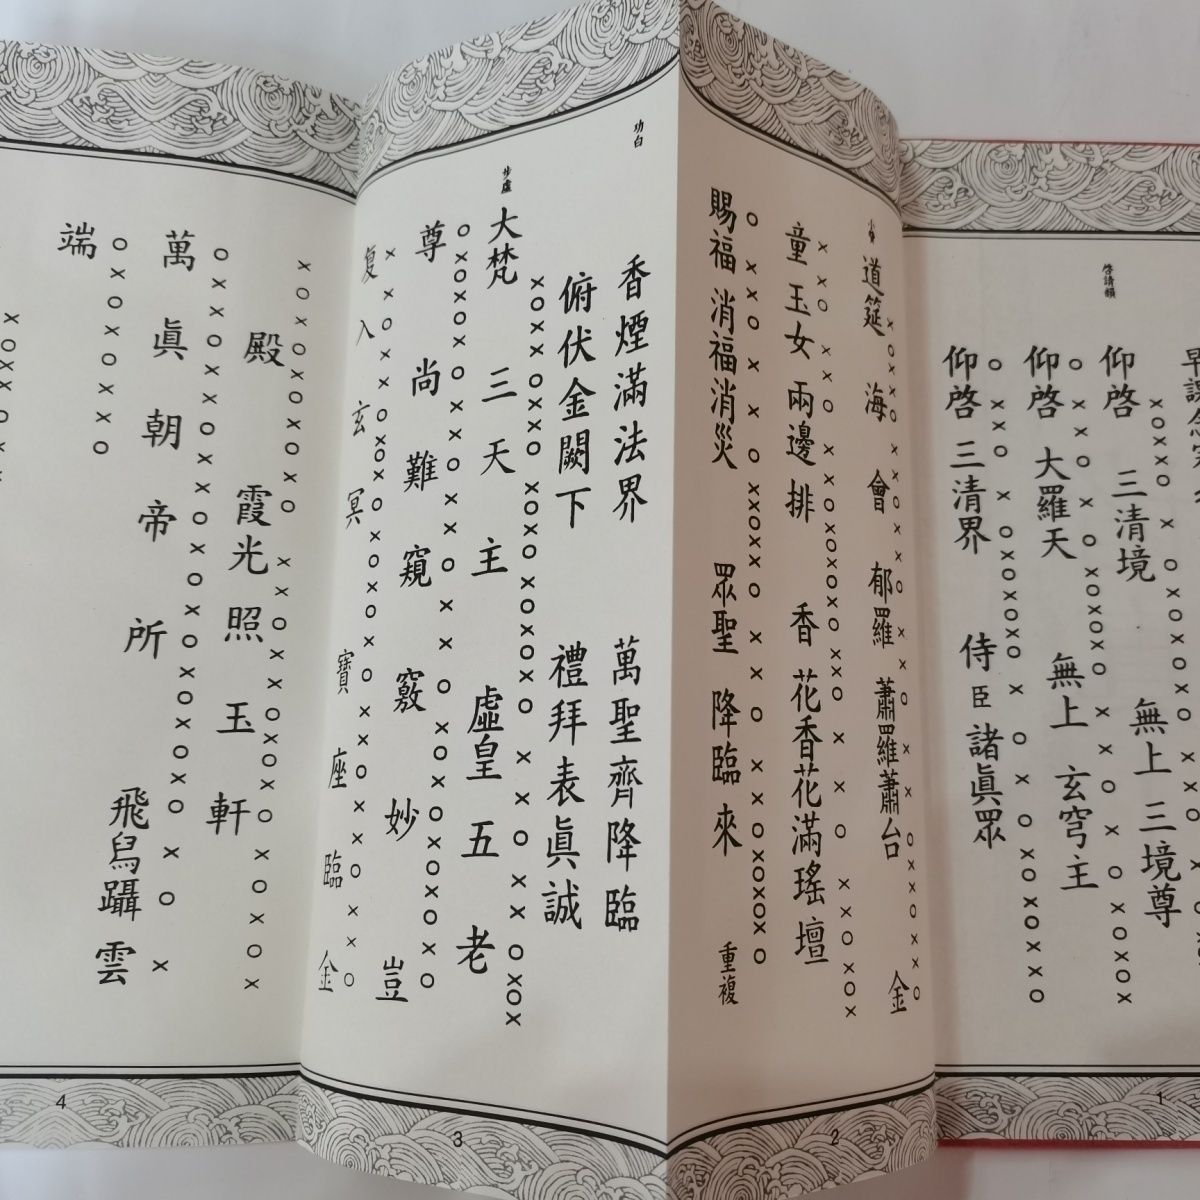 啓請韻
仰啓 三清境 無上 三境尊
仰啓 大羅天 無上 玄穹主
仰啓 三清界 侍臣諸眞眾
1
道筵 海 會 郁羅 蕭羅蕭台 金
童玉女兩邊排 香花香花滿瑤壇
賜福 消福消災 眾聖 降臨來 重複
2
功白
香煙滿法界 萬聖齊降臨
俯伏金闕下 禮拜表眞誠
步虛
大梵 三天主 虛皇五老
尊 尚難窺 竅妙 豈
復入玄冥 寶座臨金
3
殿 霞光照玉軒
萬眞朝帝所 飛舄躡雲
端
4